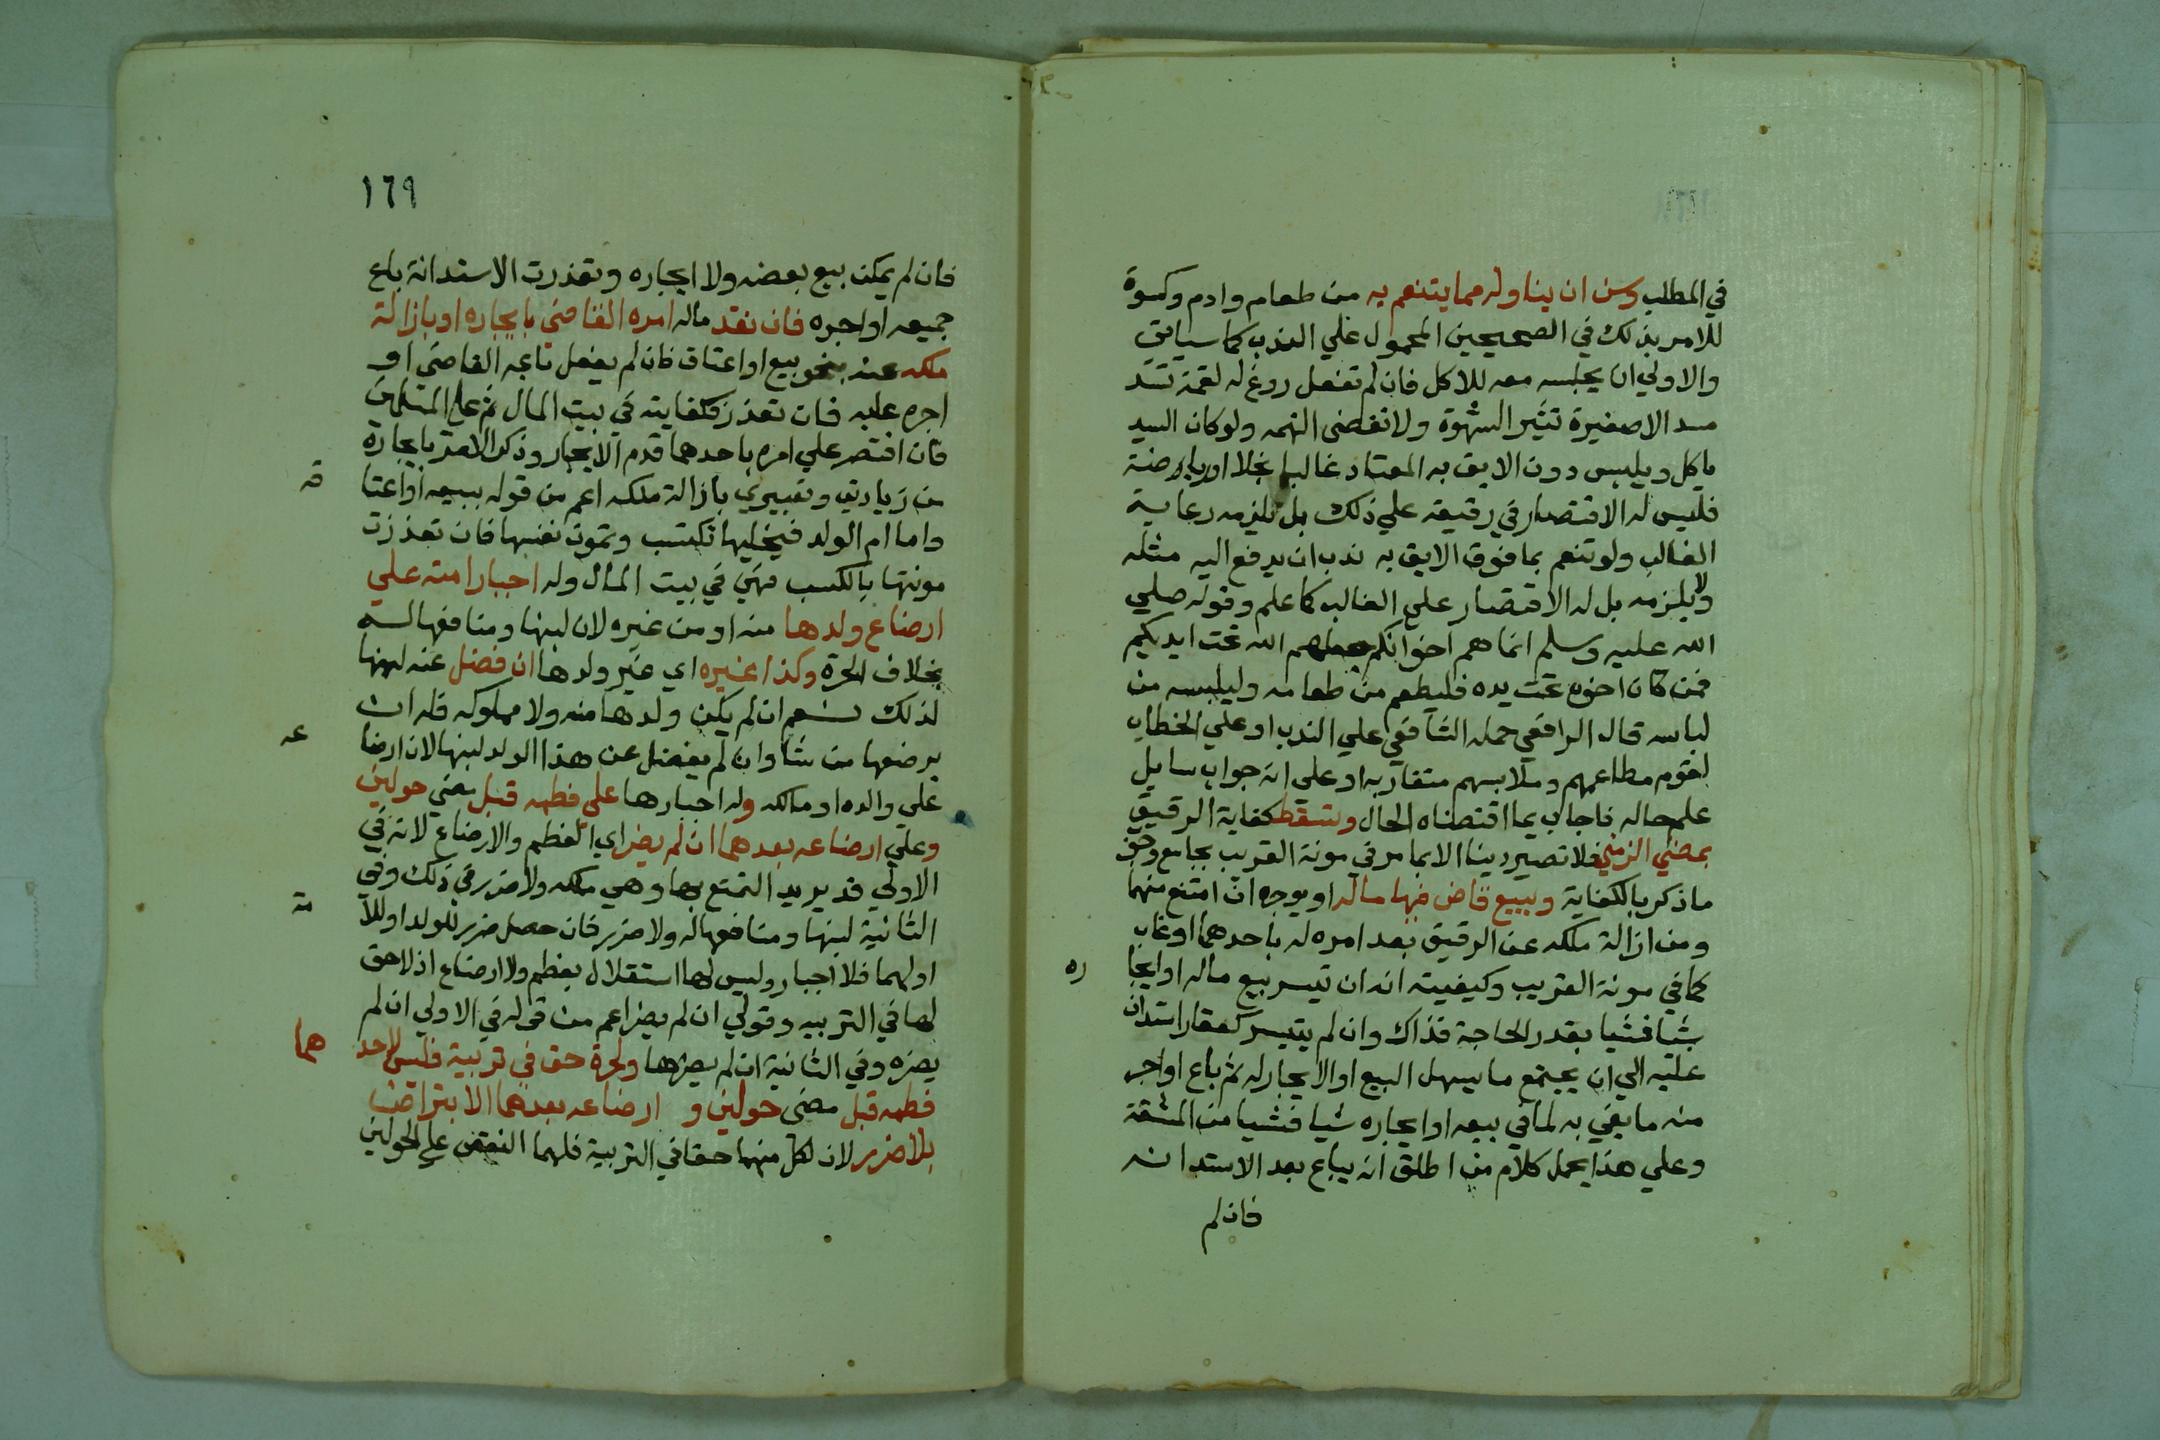 في المطلب وسن ان يناوله مما يتنعم به من طعام وادم وكسوة
للامر بذلك في الصحيحين المحمول علي الندب كما سياتي
والاولي ان يجلسه معه للاكل فان لم تفعل روغ له لقمة تسد
مسد الاصغيرة تثير الشهوة ولا تقضى النهمه ولو كان السيد
ياكل ويلبس دون الايق به المعتاد غالبا بخلا او رياضة
فليس له الاقتصار في رقيقه علي ذلك بل يلزمه رعاية
الغالب ولو تنعم بما فوق الايق به ندب ان يدفع اليه مثله
ولا يلزمه بل له الاقتصار علي الغالب كما علم وقوله صلي
الله عليه وسلم انما هم اخوانكم جعلهم الله تحت ايديكم
فمن كان اخوه تحت يده فليطعم من طعامه وليلبسه من
لباسه قال الرافعي حمله الشافعي علي الندب او علي الخطاب
لقوم مطاعمهم وملابسهم متقاربه او علي انه جواب سايل
علم حاله فاجاب بما اقتضاه الحال وتسقط كفاية الرقيق
بمضي الزمن فلا تصير دينا الا بما مر في مونة القريب بجامع وجوب
ما ذكر بالكفاية ويبيع قاض فيها ماله او يوجره ان امتنع منهما
ومن ازالة ملكه عن الرقيق بعد امره له باحدهما او غاب
كما في مونة القريب وكيفيته انه ان تيسر بيع ماله او ايجا
ره
شيا فشيا بقدر الحاجة فذاك وان لم يتيسر كعقار استدان
عليه الي ان يجتمع ما يسهل البيع او الايجار له ثم باع او اجر
منه ما يفي به لما في بيعه او ايجاره شيا فشيا من المشقة
وعلي هذا يحمل كلام من اطلق انه يباع بعد الاستدانه
فان لم
١٦٩
فان لم يمكن بيع بعضه ولا ايجاره وتعذرت الاستدانة باع
جميعه او اجره فان فقد ماله امره القاضي بايجاره او بازالة
ملكه عنه بنحو بيع او اعتاق فان لم يفعل باعه القاضي او
اجره عليه فان تعذر فكفايته في بيت المال ثم علي المسلمين
فان اقتصر علي امره باحدهما قدم الايجار وذكر الامر بايجاره
من زيادتي وتعبيري بازالة ملكه اعم من قوله ببيعه او اعتا
قه
واما ام الولد فيخليها تكتسب وتمون نفسها فان تعذرت
مونتها بالكسب فهي في بيت المال وله اجبار امته علي
ارضاع ولدها منه او من غيره لان لبنها ومنافعها له
بخلاف الحرة وكذا غيره اي غير ولدها ان فضل عنه لبنها
لذلك نعم ان لم يكن ولدها منه ولا مملوكه فله ان
يرضعها من شا وان لم يفضل عن هذا الولد لبنها لان ارضا
عه
علي والده او مالكه وله اجبارها علي فطمه قبل مضي حولين
وعلي ارضاعه بعدهما ان لم يضر اي الفطم والارضاع لانه في
الاولي قد يريد التمتع بها وهي ملكه ولا ضرر في ذلك وفي
الثانية لبنها ومنافعها له ولا ضرر فان حصل ضرر للولد او للا
مة
او لهما فلا اجبار وليس لها استقلال بفطم ولا ارضاع اذ لا حق
لها في التربيه وقولي ان لم يضر اعم من قوله في الاولي ان لم
يضره وفي الثانية ان لم يضرها ولحرة حق في تربية فليس لاحد
هما
فطمه قبل مضى حولين و ارضاعه بعدهما الا بتراض
بلا ضرر لان لكل منهما حقا في التربية فلهما النقص علي الحولين